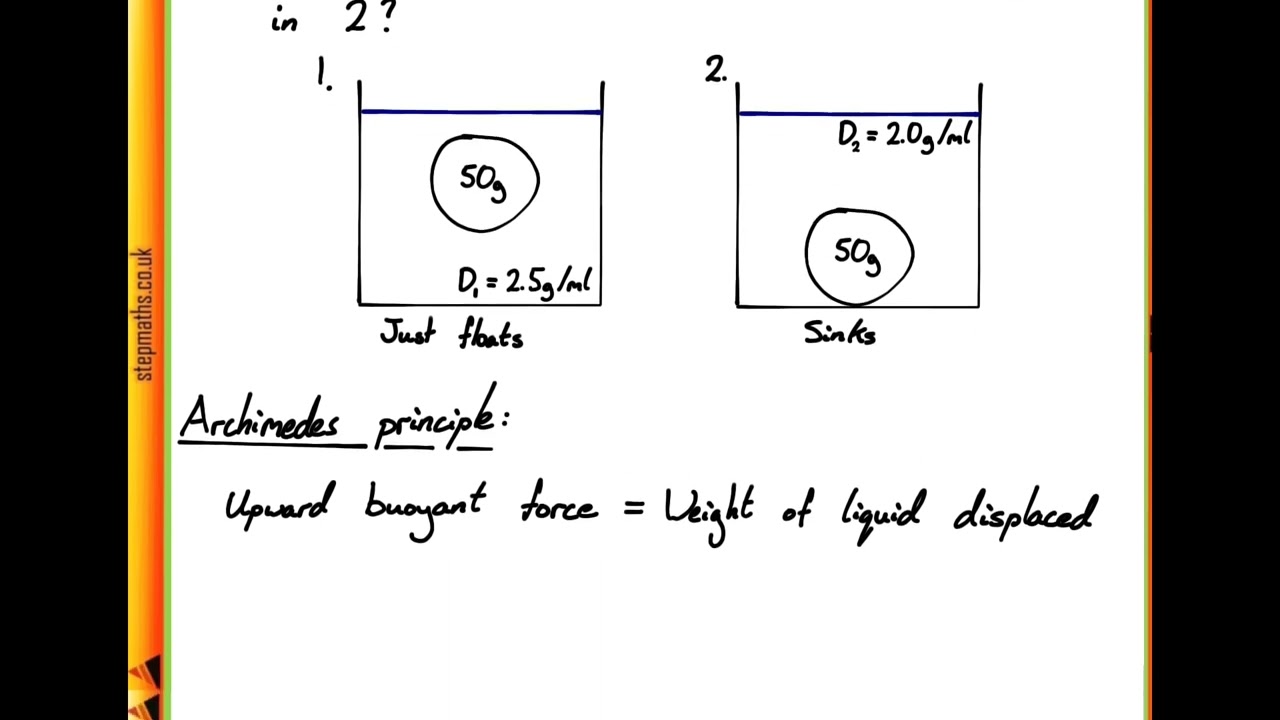 in 2?
1.
50g
D₁ = 2.5g/ml
Just floats
2.
D₂ = 2.0g/ml
50g
Sinks
Archimedes principle:
Upward buoyant force = Weight of liquid displaced
stepmaths.co.uk